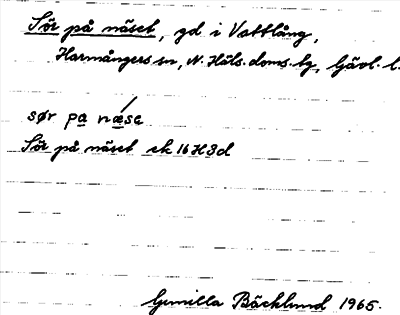 Sör på näset, gd i Vattlång,
Harmångers sn, N. Häls. doms. tg, Gävl. l.
sør pa næsa
Sör på näset ek 16H3d
Gunilla Bäcklund 1965.